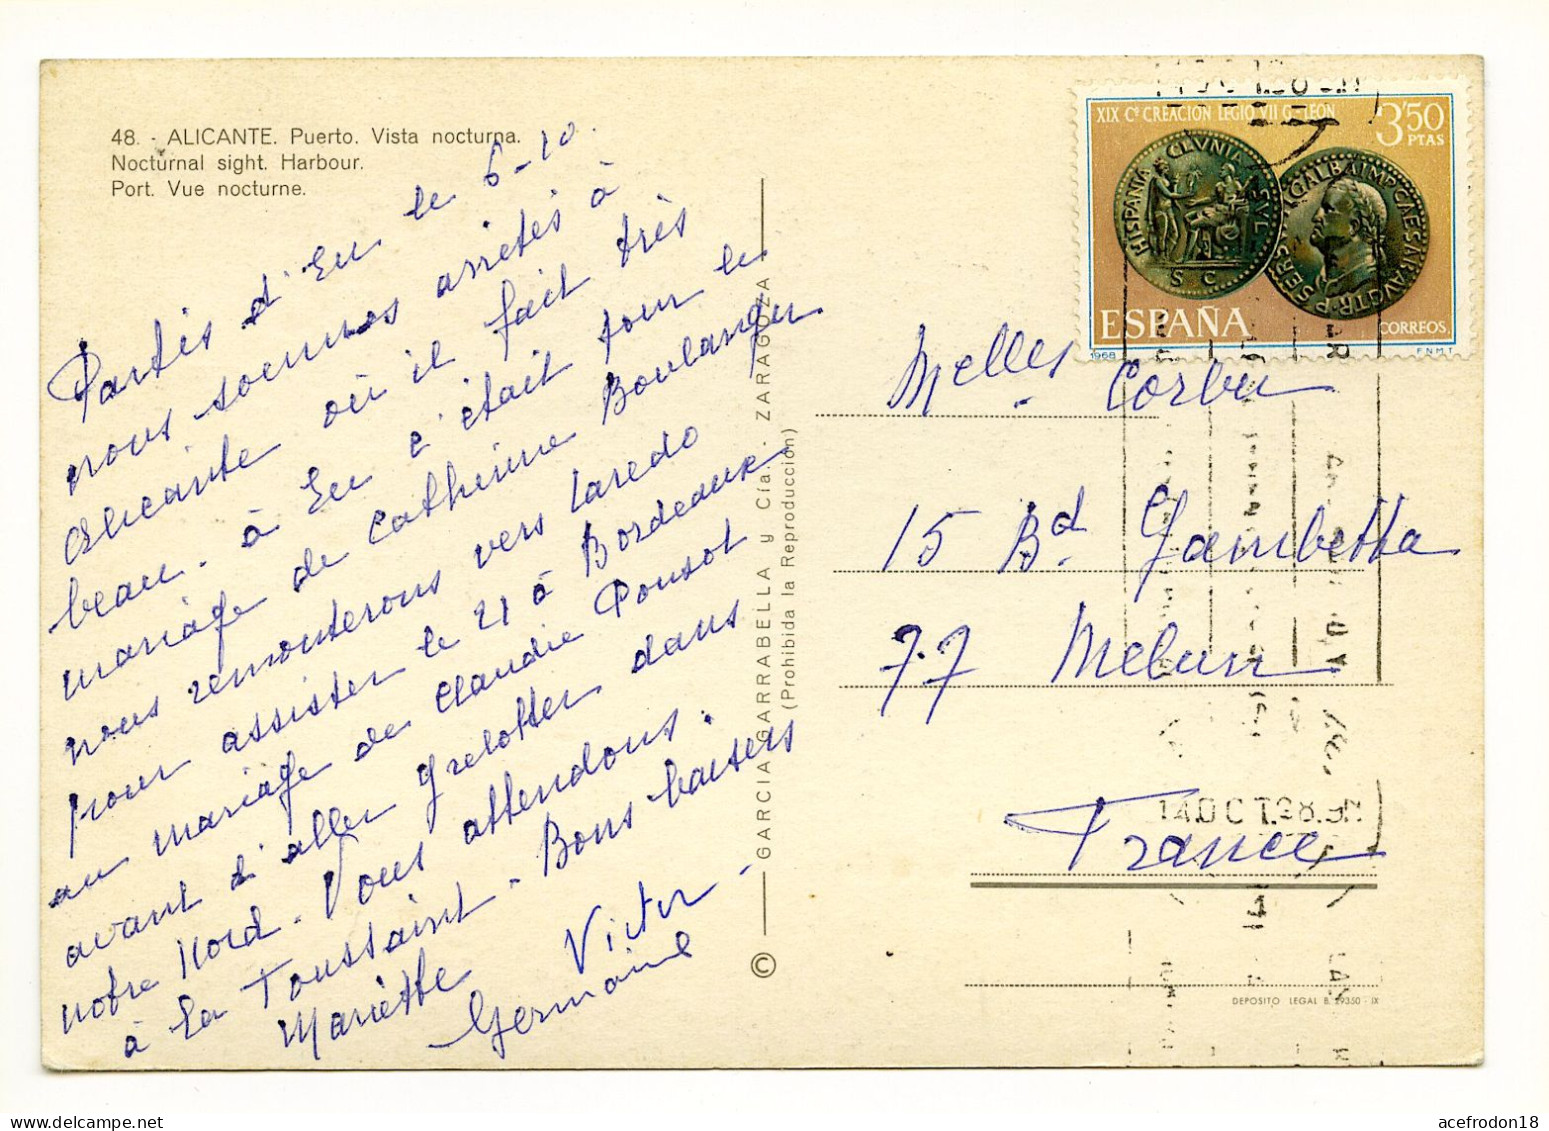 48. - ALICANTE. Puerto. Vista nocturna.
Nocturnal sight. Harbour.
Port. Vue nocturne.
Partis d'Eu le 6-10.
nous sommes arrêtés à
Alicante où il fait très
beau. à Eu c'était pour le
mariage de Catherine Boulanger.
nous remonterons vers Laredo
pour assister le 21 à Bordeaux
au mariage de Claudie Ponsot
avant d'aller grelotter dans
notre Nord. Vous attendons.
à la Toussaint. Bons baisers
Mariette Victor
Germaine
GARCIA GARRABELLA y Cía. - ZARAGOZA
(Prohibida la Reproducción)
©
XIX Cº CREACION LEGIO VII G-LEÓN
3'50
PTAS
HISPANIA CLVNIA SVL
S C
SER GALBA IMP CAESAR AVG TR P
ESPAÑA
CORREOS.
1968
F.N.M.T.
Melles Corbu
15 Bd. Gambetta
77 Melun
France
14 OCT. 68
DEPOSITO LEGAL B. 29350 - IX
acefrodon18